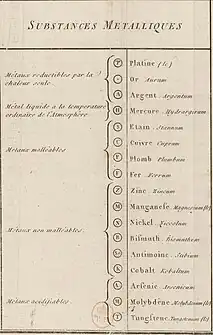 SUBSTANCES METALLIQUES
Métaux réductibles par la chaleur seule.
P Platine (le)
O Or Aurum
A Argent Argentum
Métal liquide à la température ordinaire de l'Atmosphère
H Mercure Hydrargirum
Métaux malléables
S Etain Stannum
C Cuivre Cuprum
P Plomb Plumbum
F Fer Ferrum
Métaux non malléables
Z Zinc Zincum
M Manganese Magnesium (le)
N Nickel Niccolum
B Bismuth Bismuthum
Antimoine Stibium
K Cobalt Kobaltum
Métaux acidifiables
A Arsénic Arsenicum
M Molybdène Molybdenum (le)
T Tungstene Tungstenum (le)